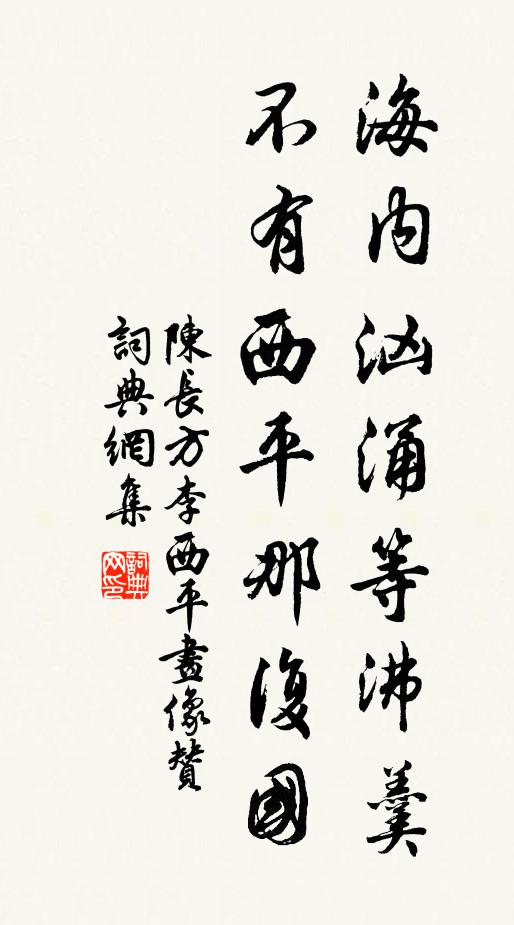 海內汹涌等沸羹
不有西平那復國
陳長方李西平畫像贊
詞典網集
詞典網印